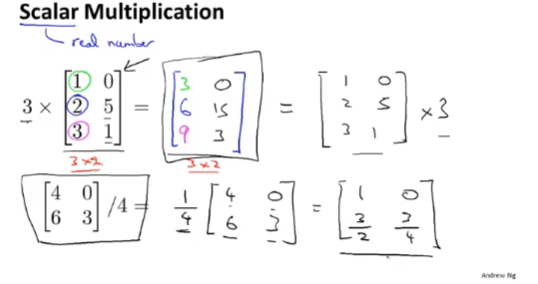 Scalar Multiplication
real number
3 × [1 0; 2 5; 3 1] = [3 0; 6 15; 9 3] = [1 0; 2 5; 3 1] × 3
3 x 2 3 x 2
[4 0; 6 3] /4 = 1/4 [4 0; 6 3] = [1 0; 3/2 3/4]
Andrew Ng